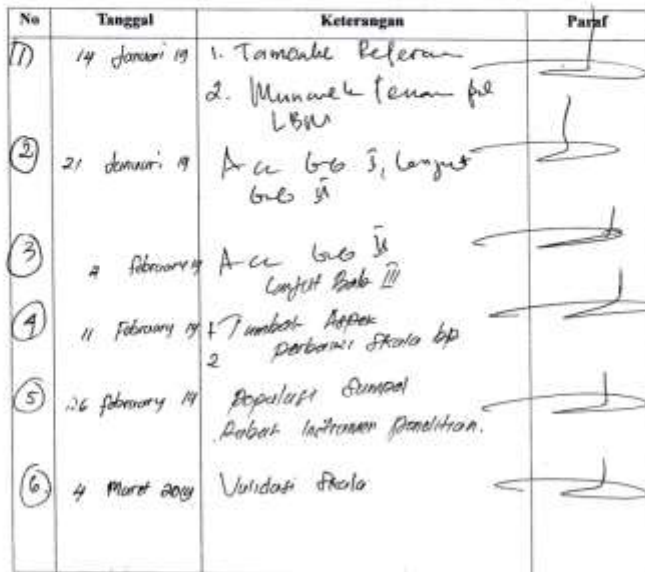 No Tanggal Keterangan Paraf
1 14 Januari 19 1. Tambahke Referensi
2. Muncul pd
LBM
2 21 Januari 19 Acc bab I, Lanjut
bab II
3 februari 19 Acc bab II
Lanjut Bab III
4 11 February 19 1 Tambah Aspek
2 perbaiki Skala
5 26 february 19 Populasi Sampel
Instrumen Penelitian.
6. 4 Maret 2019 Validasi Skala